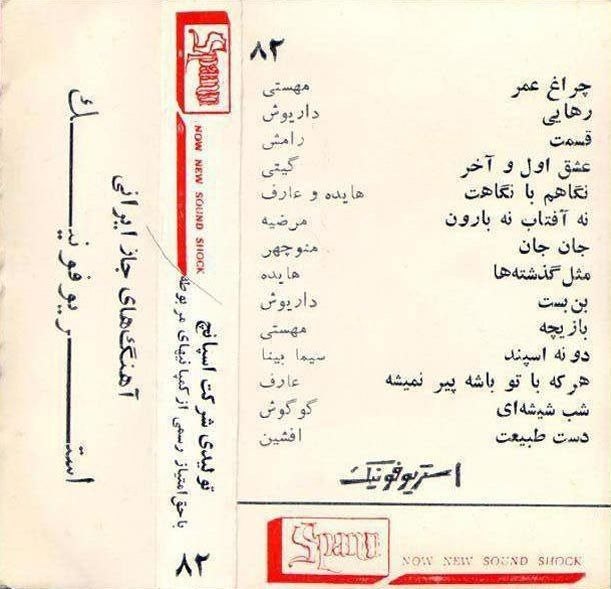 ۸۲
چراغ عمر مهستی
رهایی داریوش
قسمت رامش
عشق اول و آخر گیتی
نگاهم با نگاهت هایده و عارف
نه آفتاب نه بارون مرضیه
جان جان منوچهر
مثل گذشته‌ها هایده
بن بست داریوش
بازیچه مهستی
دونه اسپند سیما بینا
هر که با تو باشه پیر نمیشه عارف
شب شیشه‌ای گوگوش
دست طبیعت افشین
استریوفونیک
Spanv
NOW NEW SOUND SHOCK
Spanv
NOW NEW SOUND SHOCK
تولیدی شرکت اسپانچ
با حق امتیاز رسمی از کمپانیهای مربوطه
۸۲
آهنگ‌های جاز ایرانی
استریوفونیک